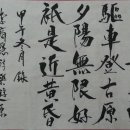 驅車登古原
夕陽無限好
祇是近黄昏
甲午冬月錄